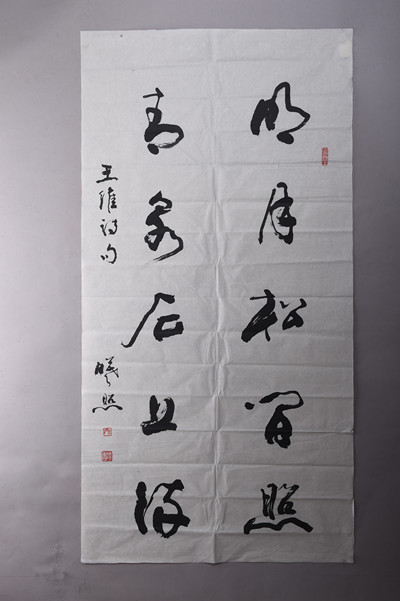 明月松间照
清泉石上流
王维诗句
曦照